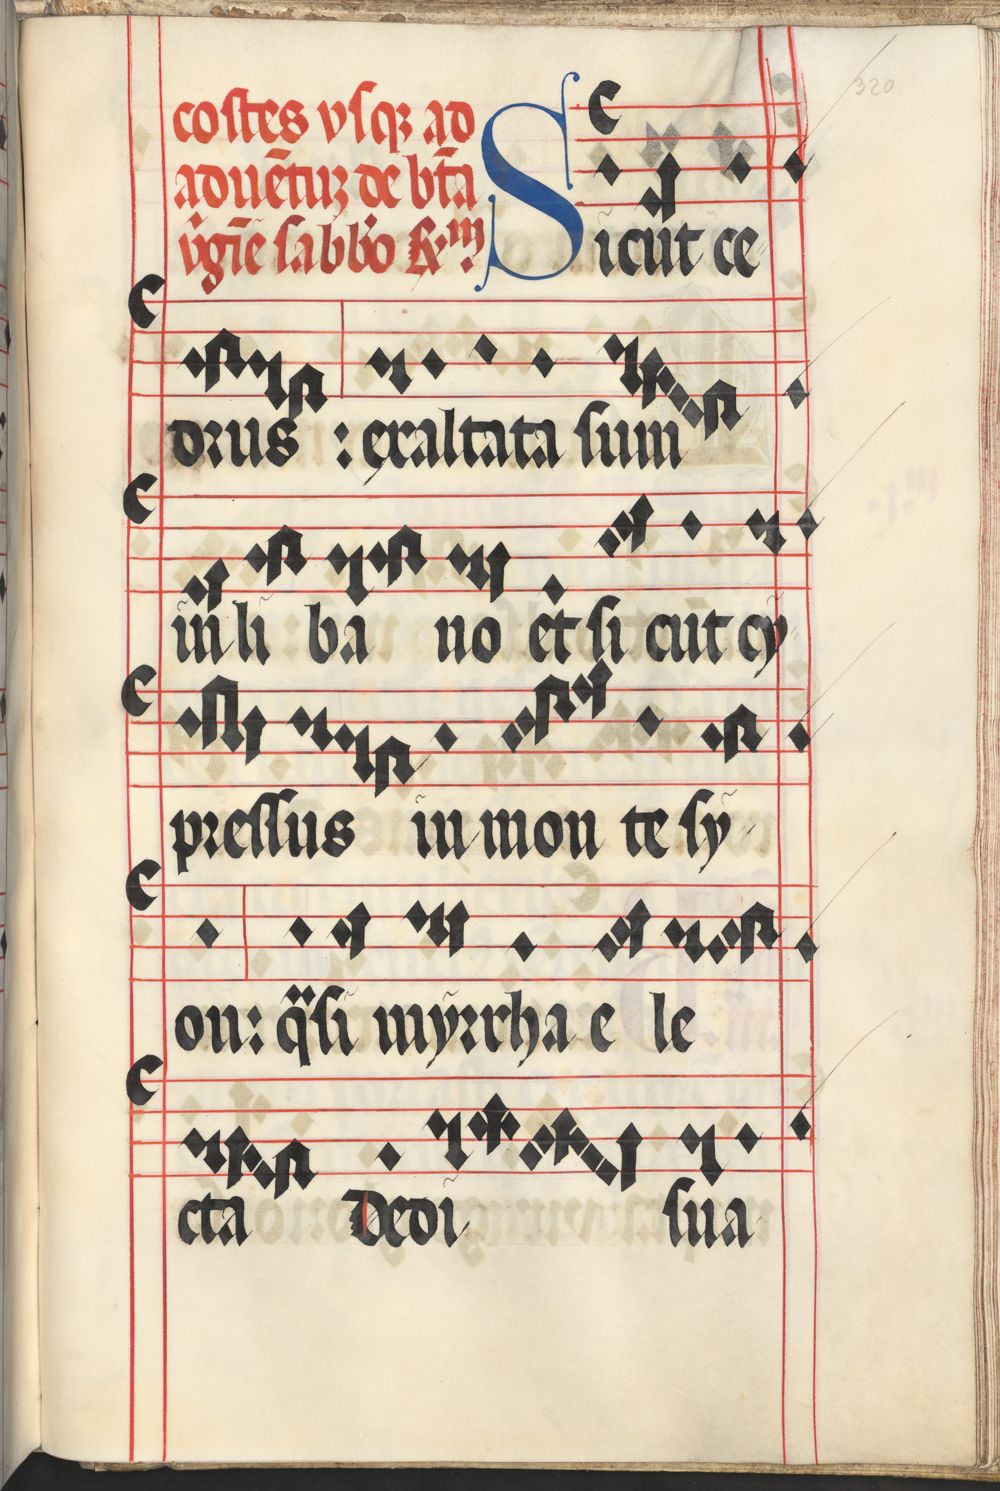 320
costes vsqꝫ ad
aduētuꝫ de btā
v̄gīe sabbo ℟m̄
Sicut ce
drus : exaltata sum
in li ba no et si cut cy
pressus in mon te sy
on: q̈si myrrha e le
cta Dedi sua